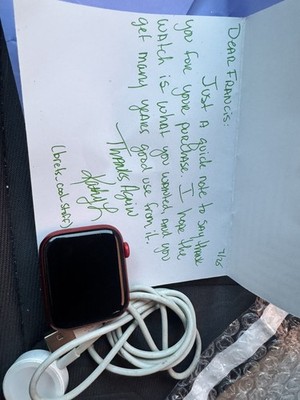 7/25
DEAR FRANCIS:
Just A quick note to say thank
you for your purchase. I hope the
watch is what you wanted, and you
get many years good use from it.
Thanks Again